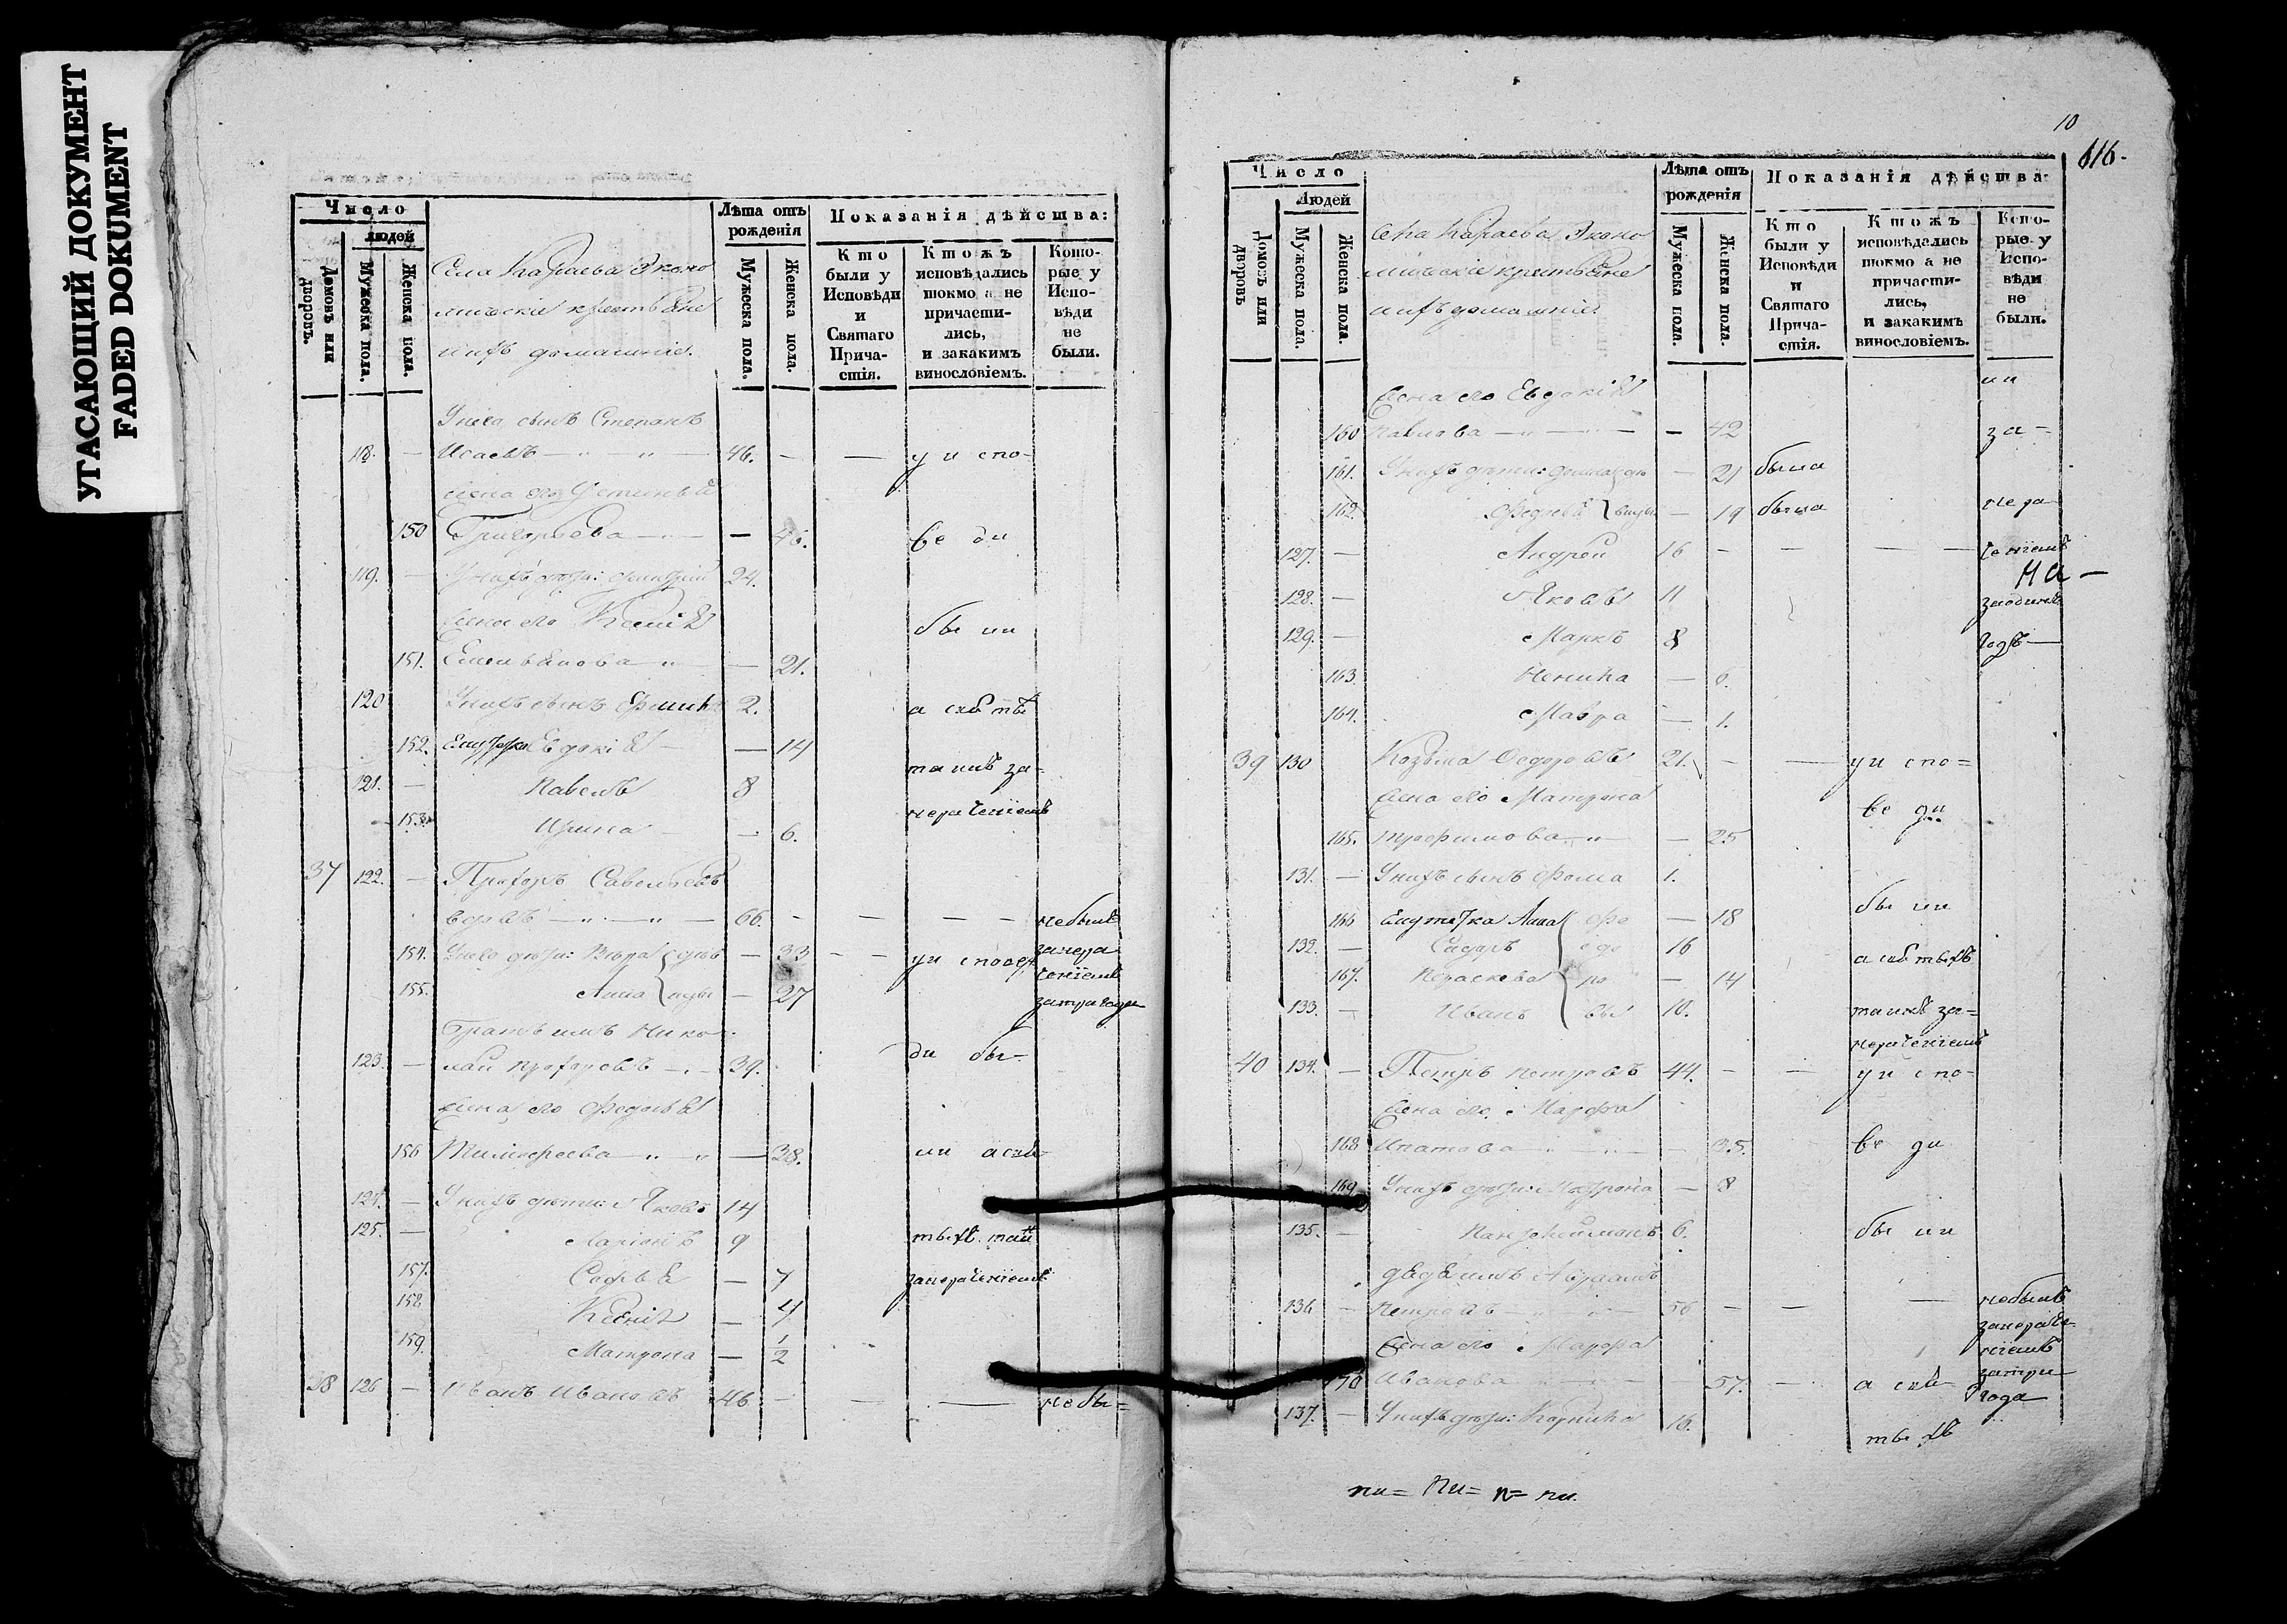 УГАСАЮЩИЙ ДОКУМЕНТ
FADED DOKUMENT
Число
людей
Домовъ или дворовъ.
Мужеска пола.
Женска пола.
Села Караева Эконо
мические крестьяне
и ихъ домашние.
Лѣта отъ рожденія
Мужеска пола.
Женска пола.
Показанія дѣйства:
Кто были у Исповѣди и Святаго Причастія.
Ктожъ исповѣдались токмо а не причастились, и закакимъ винословіемъ.
Которые у Исповѣди не были.
У него сынъ Степанъ
118. — Исаевъ — 46. — — у и спо-
Жена его Устинья
150 Григорьева — — 46. ве ди
119. — У нихъ дѣти: Дмитрий 24.
Жена его Ксения бы ли
151. Селиванова — — 21.
120 У нихъ сынъ 2. а св тѣ
152. Евдокия — — 14
таинъ за-
121. — Павелъ 8
нерачениемъ
153. Ирина — 6.
37 122. — Прохоръ Савельевъ
вдовъ — 66. — — — — небылъ
154. У него дѣти: Вѣра дѣв — 33 — — у и спове занера
чениемъ
155. Анна ицы — 27
затри года
Николай
123. — лай Прохоровъ — 39. ди бы-
Жена его Федосья
156 Тимофеева — — 38. ли а свя
124. — У нихъ дѣти: Яковъ 14
125. — Ларионъ 9 тыхъ таи
157. Софья — 7 занерачениемъ
158 Ксения — 4
159. Матрона — 1/2
38 126 — Иванъ Ивановъ 46 — — — небы=
10
616.
Число
Людей
Домовъ или дворовъ
Мужеска пола.
Женска пола.
Села Караева Эконо
мические крестьяне
и ихъ домашние
Лѣта отъ рожденія
Мужеска пола.
Женска пола.
Показанія дѣйства:
Кто были у Исповѣди и Святаго Причастія.
Ктожъ исповѣдались токмо а не причастились, и закакимъ винословіемъ.
Которые у Исповѣди не были.
ли
Жена его Евдокия
160 Павлова — — 42 за-
161. У нихъ дѣти: дѣ — 21 была
162. вицы — 19 была нера
127. — Андрей 16 — — — — чениемъ
на —
128. — Яковъ 11
заодинъ
129. — Маркъ 8 годъ —
163. Ненила — 6.
164. Мавра — 1.
39 130 Козьма Федоровъ 21. — — у и спо=
Жена его Матрона ве ди
165. Трофимова — — 25
131. — У нихъ сынъ Фома 1.
бы ли
166 Анна Фе — 18
132. — Сидоръ одо 16 а свя тыхъ
167. Параскева ро — 14
133. — Иванъ вы 10. таинъ за=
нерачениемъ
40 134. — Петръ Петровъ 44. — — у и спо-
Жена его Марфа
168 Ипатова — — 35. ве ди
169. У нихъ дѣти: Матрона — 8
135. — Пантелеймонъ 6. бы ли
136 — Петровъ — 56 — — — небылъ
занераче-
Жена его Марфа ниемъ
170 Иванова — — 57. — а свя затри
года
137. — У нихъ дѣти: Корнила 16.
тыхъ